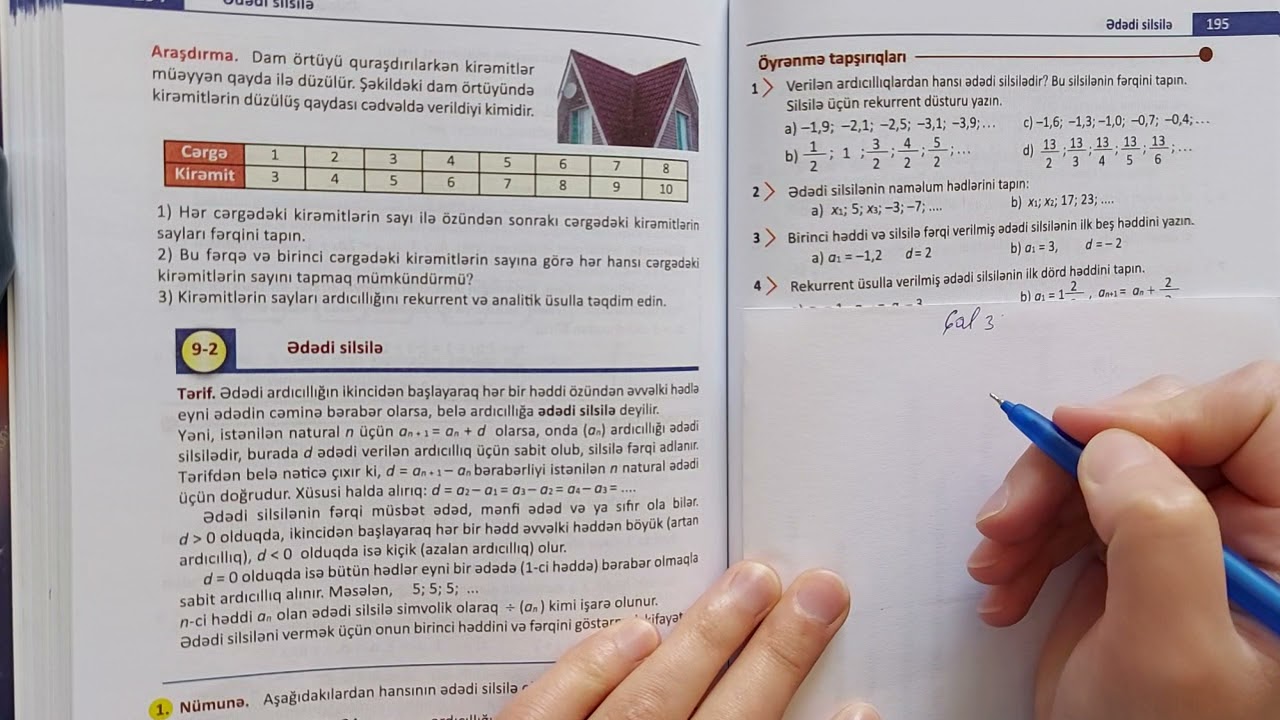 Ədədi silsilə
Araşdırma. Dam örtüyü quraşdırılarkən kirəmitlər
müəyyən qayda ilə düzülür. Şəkildəki dam örtüyündə
kirəmitlərin düzülüş qaydası cədvəldə verildiyi kimidir.
Cərgə 1 2 3 4 5 6 7 8
Kirəmit 3 4 5 6 7 8 9 10
1) Hər cərgədəki kirəmitlərin sayı ilə özündən sonrakı cərgədəki kirəmitlərin
sayları fərqini tapın.
2) Bu fərqə və birinci cərgədəki kirəmitlərin sayına görə hər hansı cərgədəki
kirəmitlərin sayını tapmaq mümkündürmü?
3) Kirəmitlərin sayları ardıcıllığını rekurrent və analitik üsulla təqdim edin.
9-2 Ədədi silsilə
Tərif. Ədədi ardıcıllığın ikincidən başlayaraq hər bir həddi özündən əvvəlki hədlə
eyni ədədin cəminə bərabər olarsa, belə ardıcıllığa ədədi silsilə deyilir.
Yəni, istənilən natural n üçün aₙ₊₁ = aₙ + d olarsa, onda (aₙ) ardıcıllığı ədədi
silsilədir, burada d ədədi verilən ardıcıllıq üçün sabit olub, silsilə fərqi adlanır.
Tərifdən belə nəticə çıxır ki, d = aₙ₊₁ − aₙ bərabərliyi istənilən n natural ədədi
üçün doğrudur. Xüsusi halda alırıq: d = a₂ − a₁ = a₃ − a₂ = a₄ − a₃ = ....
Ədədi silsilənin fərqi müsbət ədəd, mənfi ədəd və ya sıfır ola bilər.
d > 0 olduqda, ikincidən başlayaraq hər bir hədd əvvəlki həddən böyük (artan
ardıcıllıq), d < 0 olduqda isə kiçik (azalan ardıcıllıq) olur.
d = 0 olduqda isə bütün hədlər eyni bir ədədə (1-ci həddə) bərabər olmaqla
sabit ardıcıllıq alınır. Məsələn, 5; 5; 5; ...
n-ci həddi aₙ olan ədədi silsilə simvolik olaraq ÷ (aₙ) kimi işarə olunur.
Ədədi silsiləni vermək üçün onun birinci həddini və fərqini
1. Nümunə. Aşağıdakılardan hansının ədədi silsilə
Ədədi silsilə 195
Öyrənmə tapşırıqları
1 Verilən ardıcıllıqlardan hansı ədədi silsilədir? Bu silsilənin fərqini tapın.
Silsilə üçün rekurrent düsturu yazın.
a) −1,9; −2,1; −2,5; −3,1; −3,9;... c) −1,6; −1,3; −1,0; −0,7; −0,4;...
b) 1/2; 1; 3/2; 4/2; 5/2; ... d) 13/2; 13/3; 13/4; 13/5; 13/6; ...
2 Ədədi silsilənin naməlum hədlərini tapın:
a) x₁; 5; x₃; −3; −7; .... b) x₁; x₂; 17; 23; ....
3 Birinci həddi və silsilə fərqi verilmiş ədədi silsilənin ilk beş həddini yazın.
a) a₁ = −1,2 d = 2 b) a₁ = 3, d = − 2
4 Rekurrent üsulla verilmiş ədədi silsilənin ilk dörd həddini tapın.
b) a₁ = 1 2 , aₙ₊₁ = aₙ + 2
Çal 3